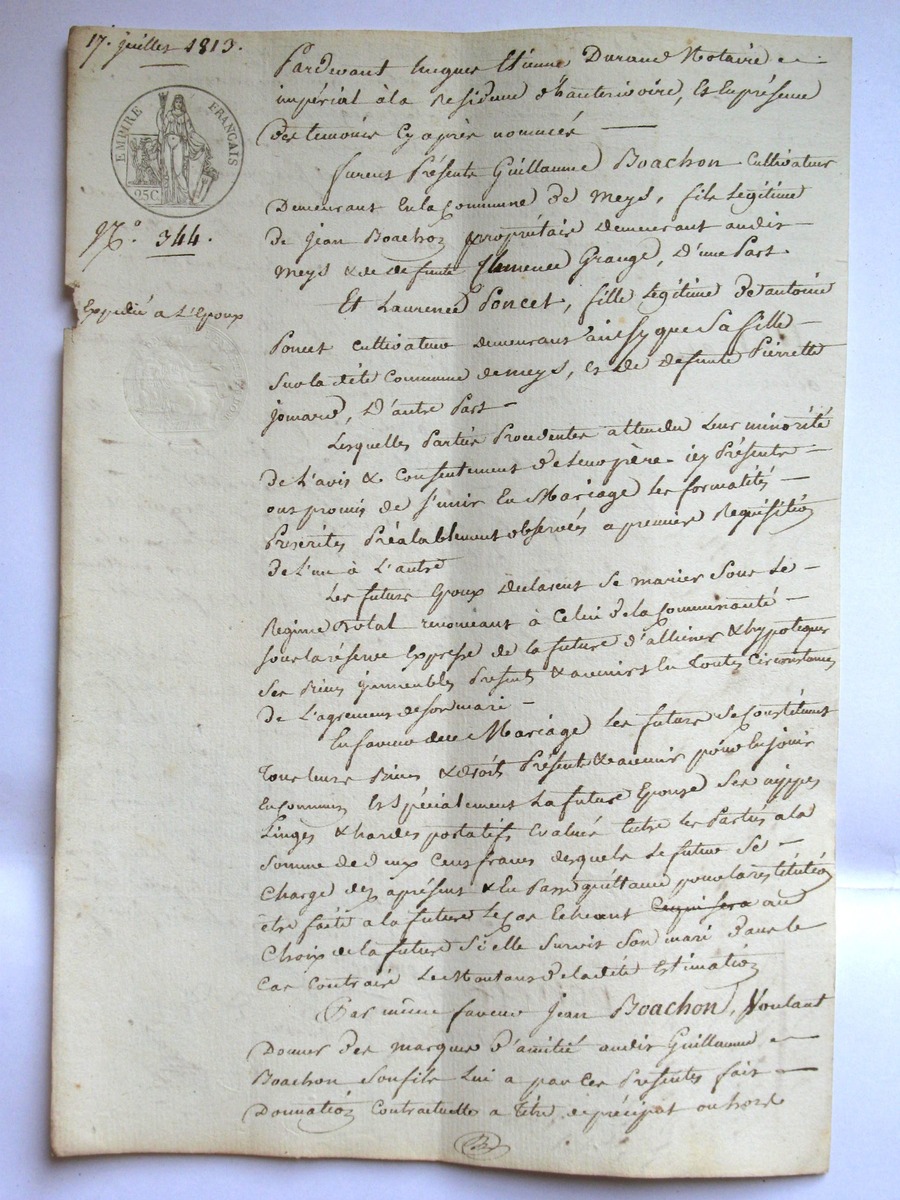 17. juillet 1813.
EMPIRE FRANÇAIS
25C
N.o 344.
Expédié a L'Epoux
Pardevant hugues Etienne Durand Notaire
impérial à la Residence d'hauterivoire, Et En présence
Des temoins Cy après nommés —
furent Présents Guillaume Boachon Cultivateur
Demeurant En la Commune de Meys, fils Legitime
de Jean Boachon propriétaire demeurant audit
Meys & de defunte Clemence Grange, D'une Part
Et Laurence Poncet, fille Legitime de antoine
Poncet Cultivateur demeurant ainsy que Sa fille —
Sur la dite Commune de meys, et de defunte Pierrette
jomard, D'autre Part —
Lesquelles Parties Procedentes attendu Leur minorité
De L'avis & Consentement de Leur père icy Présents —
ont promis de S'unir En Mariage les formalités —
Prescrites Préalablement observées a premiere Requisition
de L'un à L'autre
Les futurs Epoux Declarent Se marier Sous Le —
Regime Dotal renonceant à Celui de la Communauté —
sous la réserve Expresse de la future d'alliener & hypotequer
Ses Biens jmmeubles Presents & avenirs En toutes Circonstances
De L'agrement de Son mari —
En faveur du Mariage les futurs Se Constituent
Tous leurs Biens & droits Présents & avenir pour En jouir
En Commun Et Spécialement La future Epouse Ses nippes
Linges & hardes portatifs Evalués Entre les Parties a la
Somme de deux Cens francs desquels Le futur Se —
Charge dez aprésent & En Passe quittance pour la restitution
être faite a la future le Cas Echeant Ce qui Sera au
Choix de la future Si elle Survit Son mari Dans le
Cas Contraire Le Montant de la dite Estimation
Par même faveur Jean Boachon, Voulant
Donner des marques D'amitié audit Guillaume
Boachon Son fils Lui a par Ces Presentes fait —
Donnation Contractuelle a titre de préciput ou hors